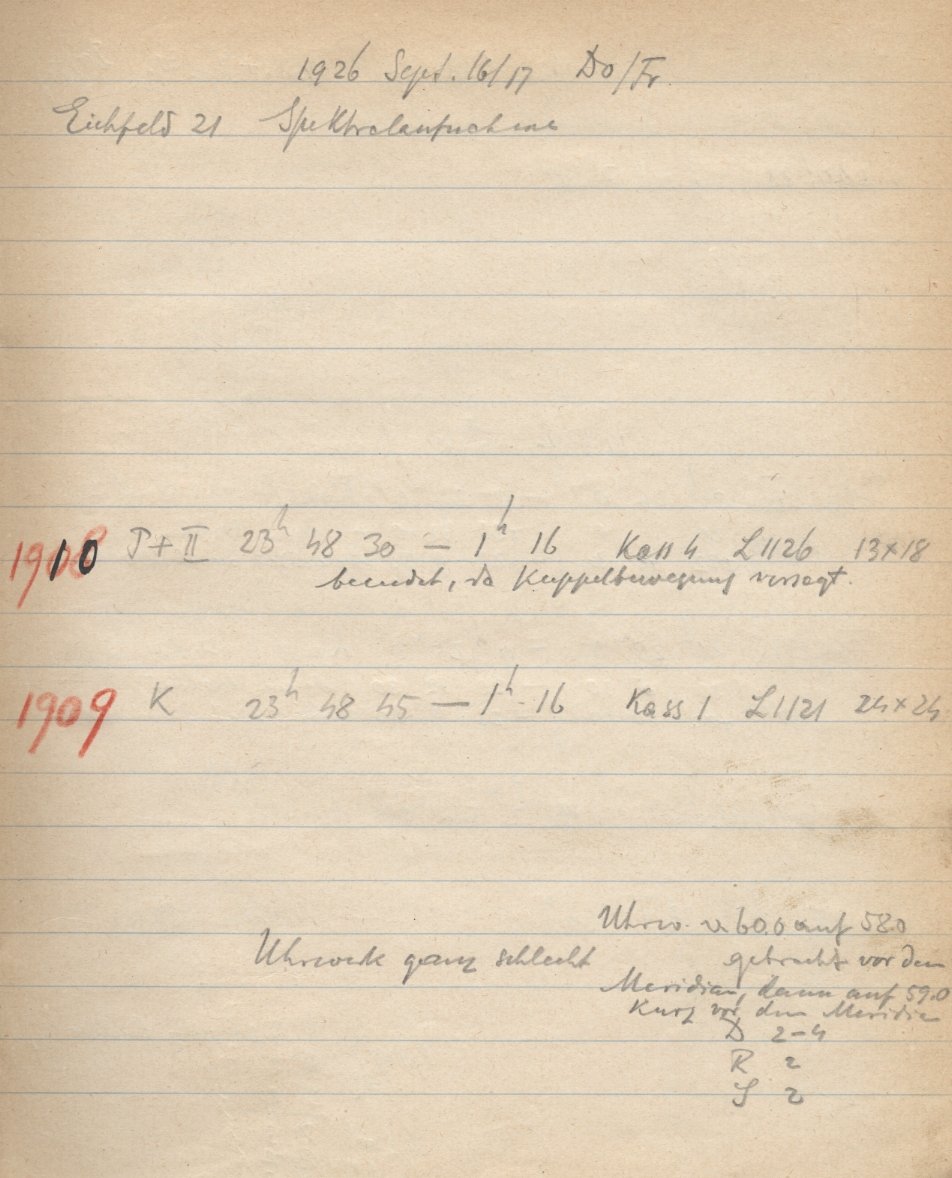 1926 Sept. 16/17 Do/Fr.
Eichfeld 21 Spektralaufnahme
1910 P + II 23h 48 30 — 1h 16 Kass 4 L1126 13×18
beendet, da Kuppelbewegung versagt.
1909 K 23h 48 45 — 1h 16 Kass 1 L1121 24×24
Uhrw. v. 60.0 auf 58.0
Uhrwerk ganz schlecht gebracht vor dem
Meridian, dann auf 59.0
kurz vor dem Meridian
D 2–4
R 2
S 2